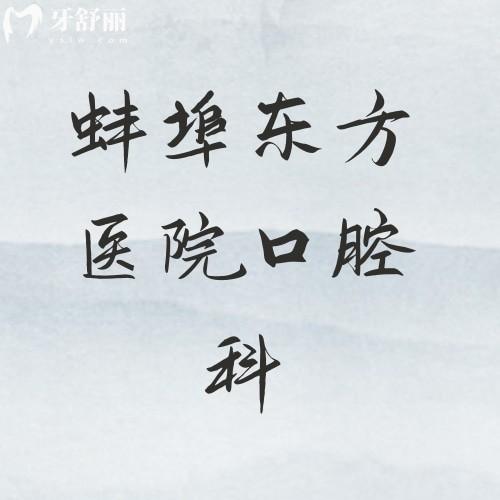 牙舒丽
yslw.com
蚌埠东方
医院口腔
科